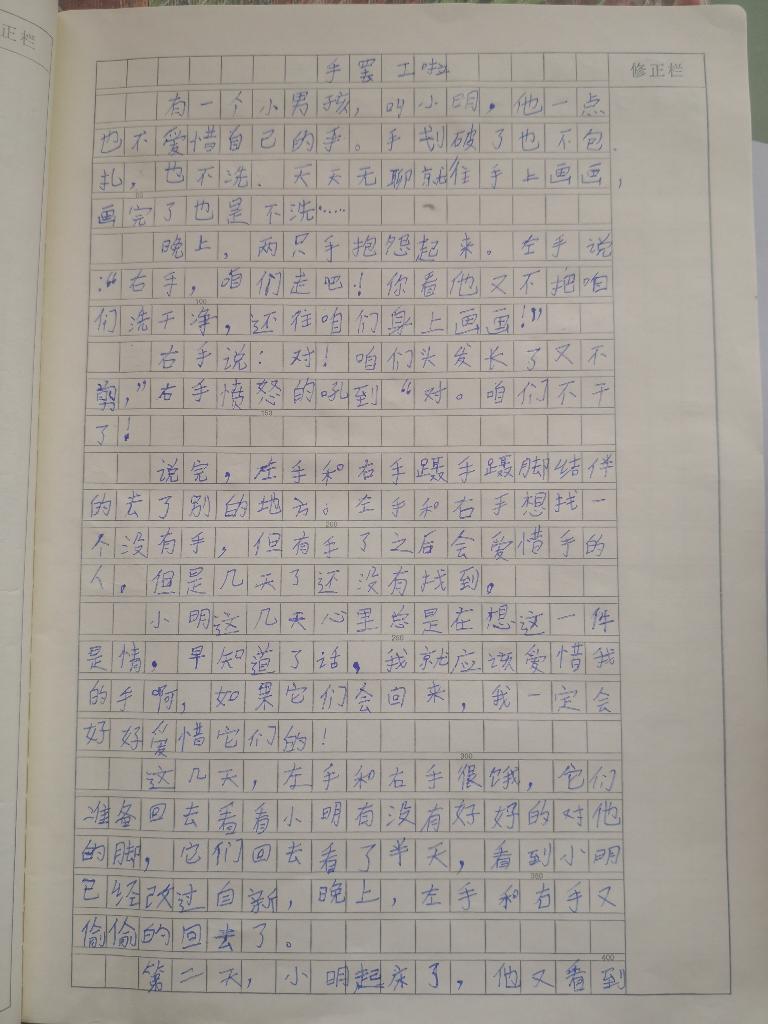 正栏
修正栏
手罢工啦
有一个小男孩，叫小明，他一点
也不爱惜自己的手。手划破了也不包
扎，也不洗．天天无聊就往手上画画，
画完了也是不洗……
晚上，两只手抱怨起来。左手说
：“右手，咱们走吧！你看他又不把咱
们洗干净，还往咱们身上画画！”
100
右手说：对！咱们头发长了又不
剪，”右手愤怒的吼到“对。咱们不干
了！
说完，左手和右手蹑手蹑脚结伴
的去了别的地方。左手和右手想找一
200
个没有手，但有手了之后会爱惜手的
人。但是几天了还没有找到。
小明这几天心里总是在想这一件
是情。早知道了话，我就应该爱惜我
的手啊，如果它们会回来，我一定会
好好爱惜它们的！
300
这几天，左手和右手很饿，它们
准备回去看看小明有没有好好的对他
的脚，它们回去看了半天，看到小明
已经改过自新，晚上，左手和右手又
偷偷的回去了。
400
第二天，小明起床了，他又看到